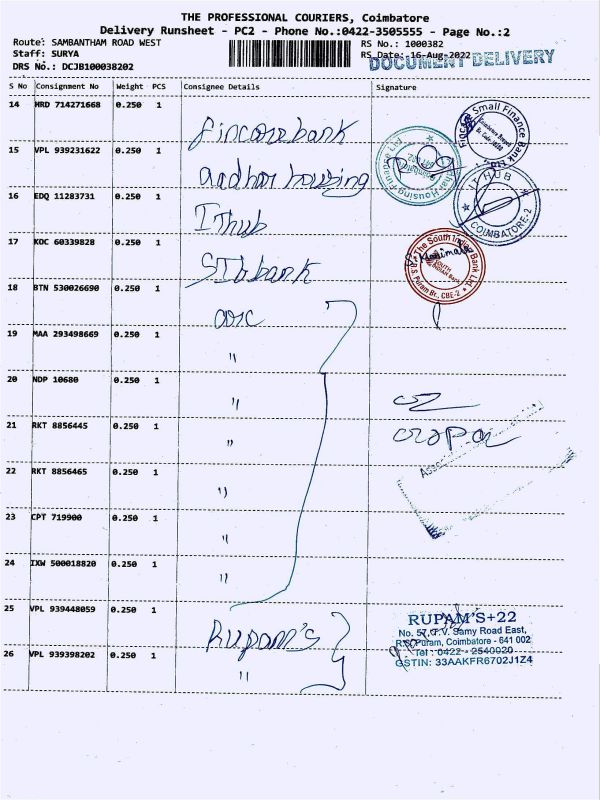 THE PROFESSIONAL COURIERS, Coimbatore
Delivery Runsheet - PC2 - Phone No.:0422-3505555 - Page No.:2
Route: SAMBANTHAM ROAD WEST RS No.: 1000382
Staff: SURYA RS Date: 16-Aug-2022
DOCUMENT DELIVERY
DRS No.: DCJB100038202
S No Consignment No Weight PCS Consignee Details Signature
14 HRD 714271668 0.250 1 fincare bank
Fincare Small Finance Bank
15 VPL 939231622 0.250 1 aadhar housing
Housing Finance Ltd
16 EDQ 11283731 0.250 1 IThub
ITHUB
COIMBATORE-2
17 KOC 60339828 0.250 1 SIb bank
The South Indian Bank Ltd.
SOUTH INDIAN Bank
R.S. Puram Br., CBE-2
18 BTN 530026690 0.250 1
19 MAA 293498669 0.250 1 "
20 NDP 10680 0.250 1 "
21 RKT 8856445 0.250 1 "
22 RKT 8856465 0.250 1 "
23 CPT 719900 0.250 1 "
24 IXW 500018820 0.250 1 "
25 VPL 939448059 0.250 1 Rupam's
RUPAM'S+22
No. 57, T.V. Samy Road East,
R.S. Puram, Coimbatore - 641 002
Tel : 0422 - 2540020
GSTIN: 33AAKFR6702J1Z4
26 VPL 939398202 0.250 1 "